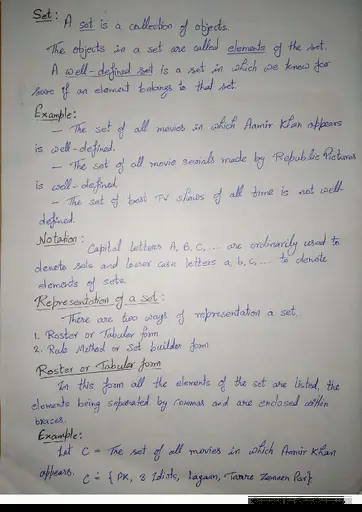 Set:
A set is a collection of objects.
The objects in a set are called elements of the set.
A well-defined set is a set in which we know for
sure if an element belongs to that set.
Example:
- The set of all movies in which Aamir Khan appears
is well-defined.
- The set of all movie serials made by Republic Pictures
is well-defined.
- The set of best TV shows of all time is not well
defined.
Notation:
Capital letters A, B, C, .... are ordinarily used to
denote sets and lower case letters a, b, c, .... to denote
elements of sets.
Representation of a set:
There are two ways of representation a set.
1. Roster or Tabular form
2. Rule Method or Set builder form
Roster or Tabular form
In this form all the elements of the set are listed, the
elements being separated by commas and are enclosed within
braces.
Example:
Let C = The set of all movies in which Aamir Khan
appears.
C = { PK, 3 Idiots, Lagaan, Taare Zameen Par}